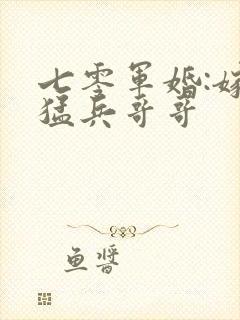 七零军婚:嫁
猛兵哥哥
鱼酱